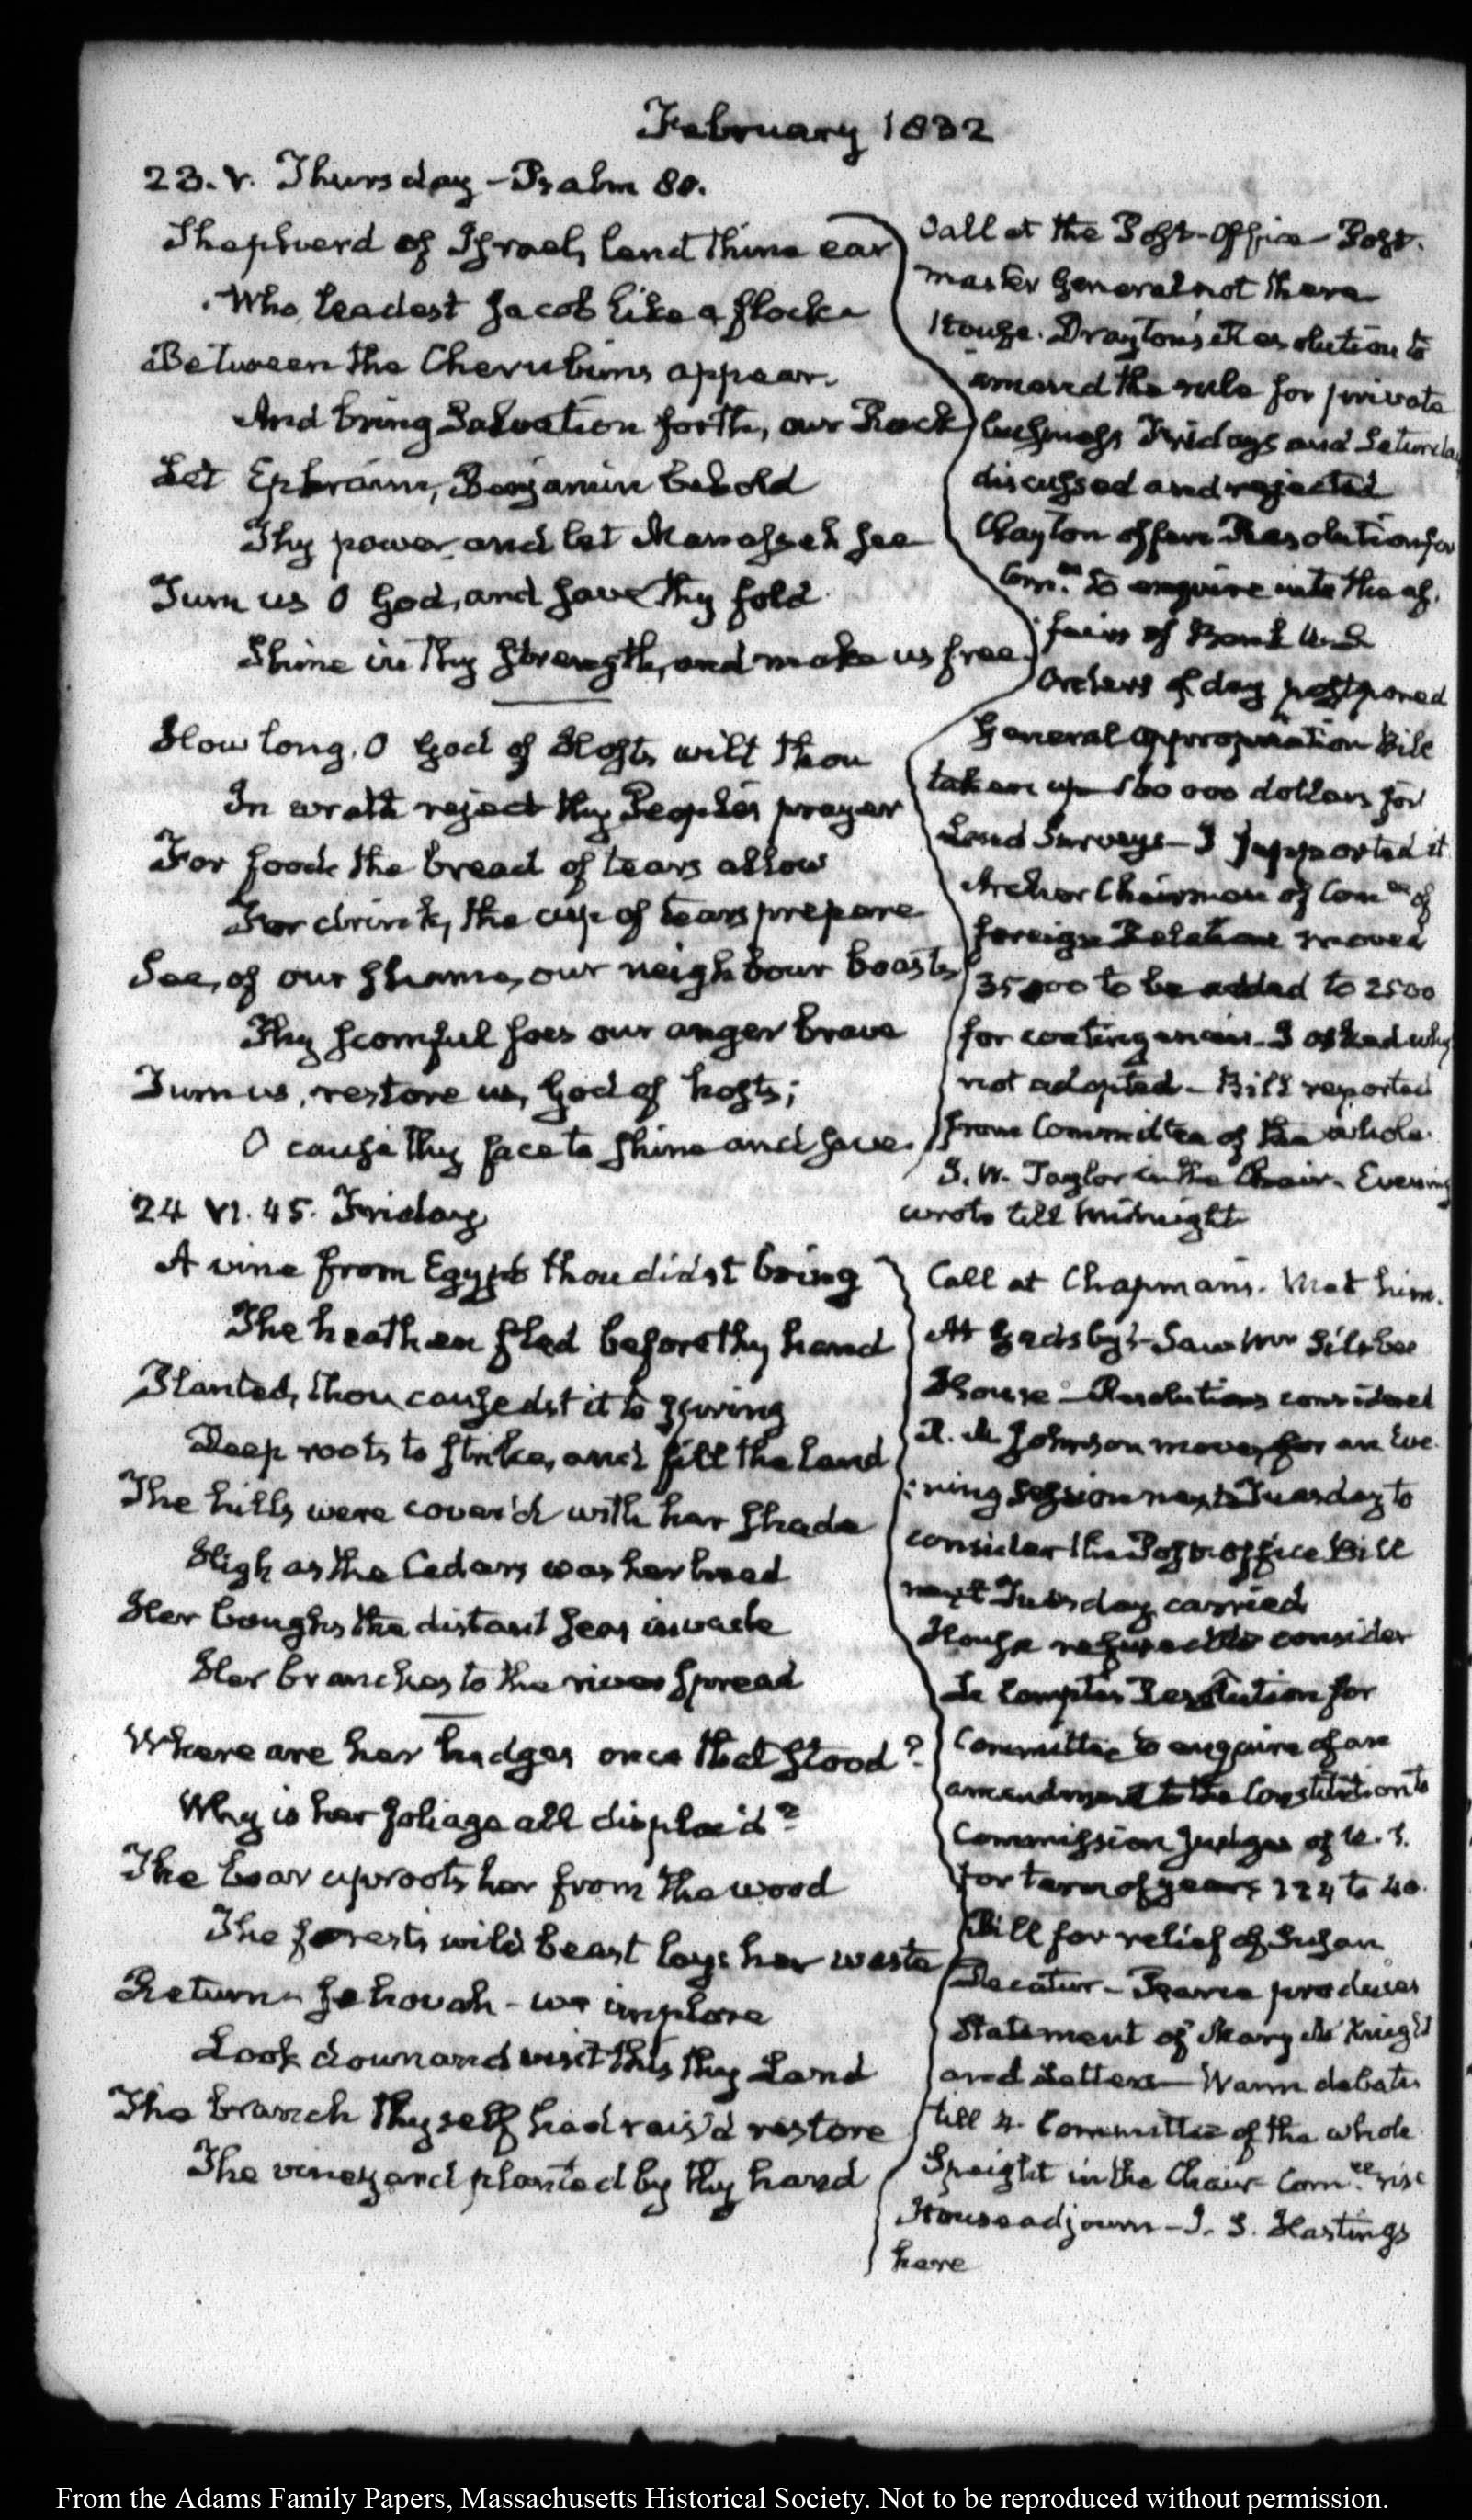 February 1832
23. V. Thursday - Psalm 80.
Shepherd of Israel, lend thine ear
Who, leadest Jacob like a flock
Between the Cherubims appear.
And bring Salvation forth, our Rock
Let Ephraim, Benjamin behold
Thy power, and let Manasseh see
Turn us O God, and save thy fold
Shine in thy strength, and make us free.
How long, O God of Hosts, wilt thou
In wrath reject thy People's prayer
For food the bread of tears allow
For drink, the cup of tears prepare
See, of our shame, our neighbour boasts
Thy scornful foes our anger brave
Turn us, restore us, God of hosts;
O cause thy face to shine and save.
Call at the Post-Office - Post-
master General not there
House. Drayton's Resolution to
amend the rule for private
business Fridays and Saturday
discussed and rejected
Clayton offers Resolution for
Comee. to enquire into the af-
fairs of Bank U.S
Orders of day postponed
General Appropriation Bill
taken up 180 000 dollars for
Land Surveys - I supported it
Archer Chairman of Comee of
foreign Relations moved
35000 to be added to 2500
for contingencies. I asked why
not adopted - Bill reported
from Committee of the whole.
J. W. Taylor in the Chair. Evening
wrote till midnight
24 VI. 45. Friday
A vine from Egypt thou didst bring
The heathen fled before thy hand
Planted, thou causedst it to spring
Deep roots to strike, and fill the land
The hills were cover'd with her shade
High as the Cedars was her head
Her boughs the distant seas invade
Her branches to the river spread
Where are her hedges once that stood?
Why is her foliage all displac'd?
The boar uproots her from the wood
The forest's wild beast lays her waste
Return Jehovah - we implore
Look down and visit this thy Land
The branch thyself had rais'd restore
The vineyard planted by thy hand
Call at Chapman's. Met him.
At Gadsby's - Saw Mr Silsbee
House - Resolutions considered
R. M Johnson moves for an Eve-
:ning Session next Tuesday to
consider the Post office Bill
next Tuesday carried
House refused to consider
Le Compte's Resolution for
Committee to enquire of an
amendment to the Constitution to
Commission Judges of U.S.
for term of years 124 to 40.
Bill for relief of Susan
Decatur - Pearce produces
Statement of Mary Knight
and Letters - Warm debate
till 4. Committee of the whole
Speight in the Chair Comee. rise
House adjourn - J. S. Hastings
here
From the Adams Family Papers, Massachusetts Historical Society. Not to be reproduced without permission.